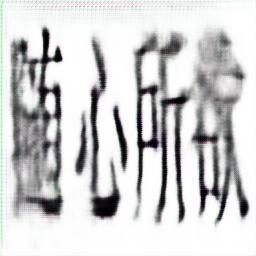 随心所欲